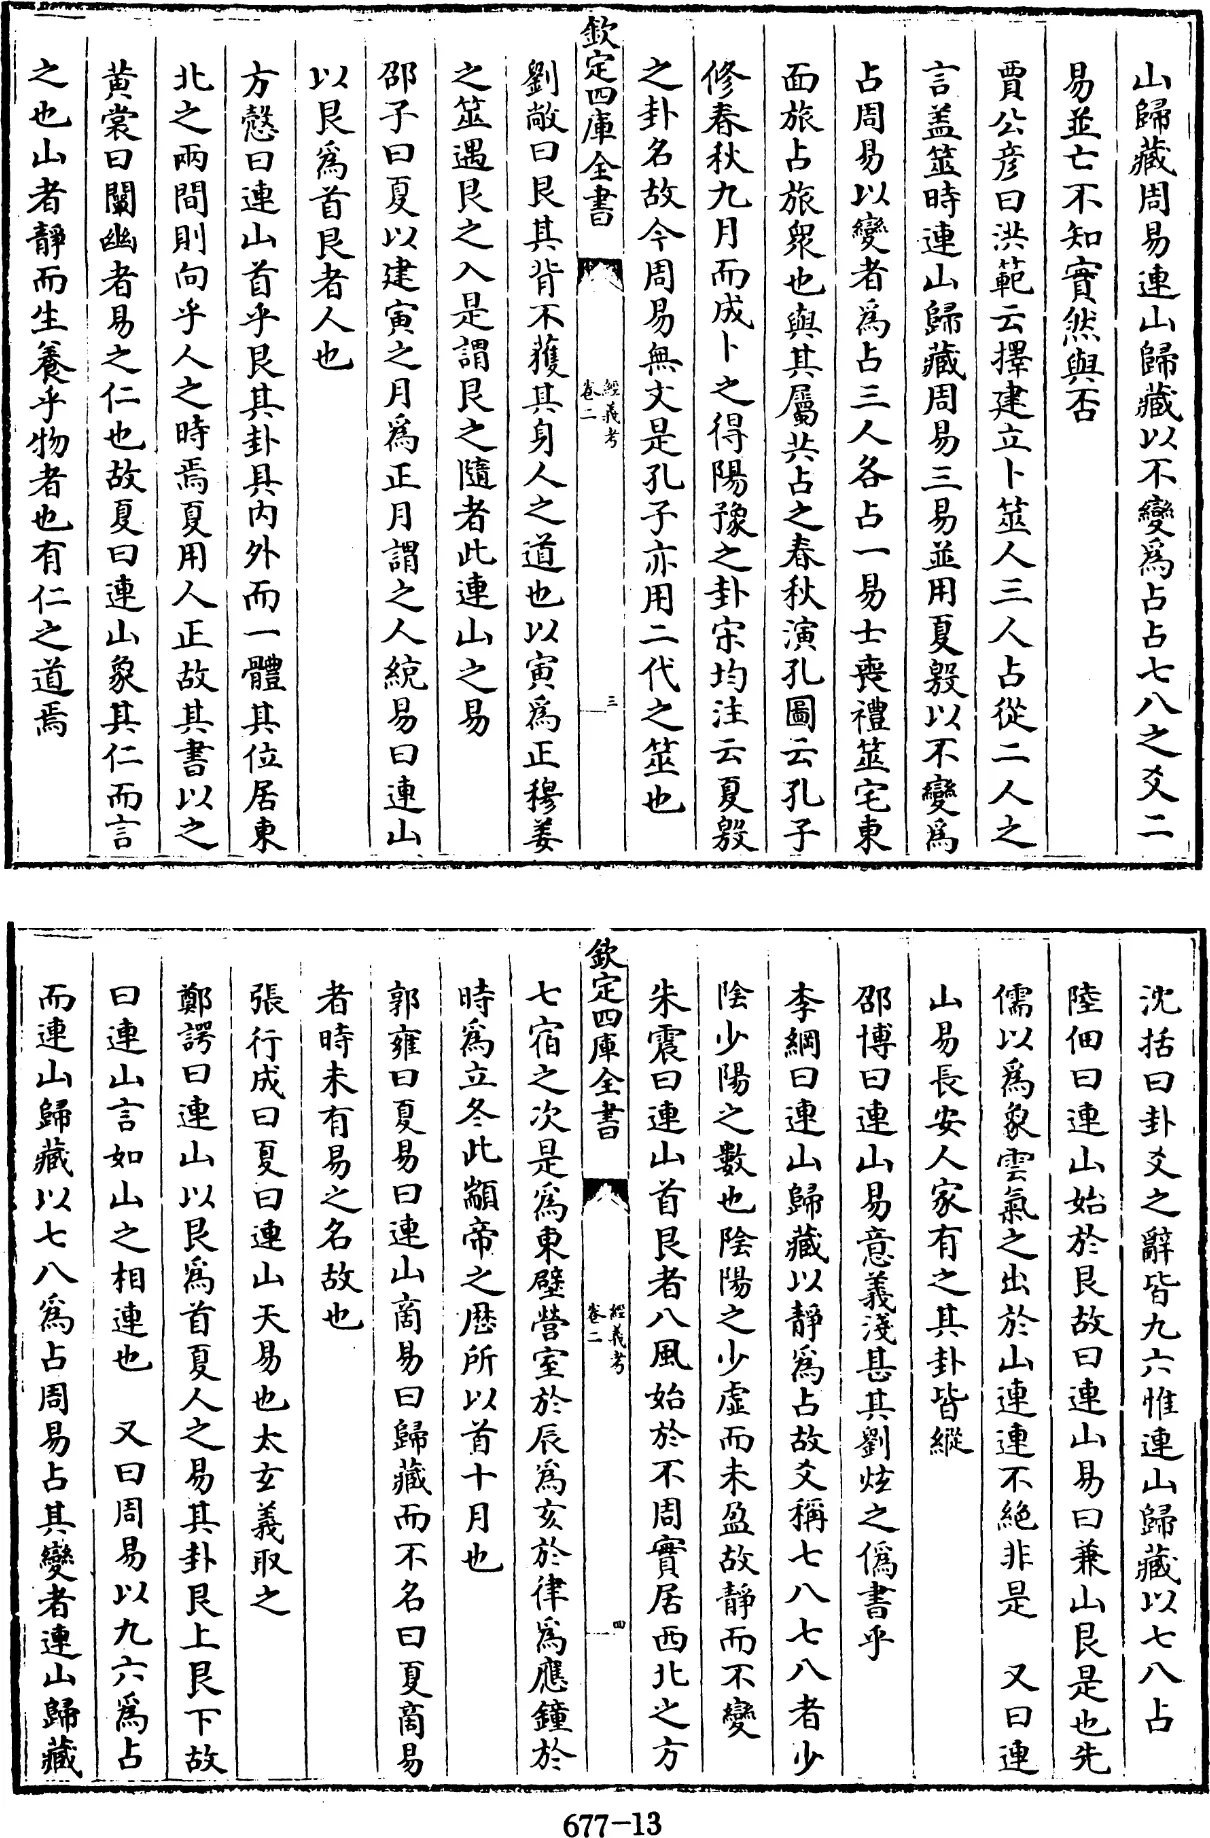 山歸藏周易連山歸藏以不變爲占占七八之爻二
易並亡不知實然與否
賈公彦曰洪範云擇建立卜筮人三人占從二人之
言盖筮時連山歸藏周易三易並用夏殷以不變爲
占周易以變者爲占三人各占一易士喪禮筮宅東
面旅占旅衆也與其屬共占之春秋演孔圖云孔子
修春秋九月而成卜之得陽豫之卦宋均注云夏殷
之卦名故今周易無文是孔子亦用二代之筮也
欽定四庫全書
經義考
卷二
三
劉敞曰艮其背不獲其身人之道也以寅爲正穆姜
之筮遇艮之入是謂艮之隨者此連山之易
邵子曰夏以建寅之月爲正月謂之人統易曰連山
以艮爲首艮者人也
方慤曰連山首乎艮其卦具内外而一體其位居東
北之兩間則向乎人之時焉夏用人正故其書以之
黄裳曰闡幽者易之仁也故夏曰連山象其仁而言
之也山者靜而生養乎物者也有仁之道焉
沈括曰卦爻之辭皆九六惟連山歸藏以七八占
陸佃曰連山始於艮故曰連山易曰兼山艮是也先
儒以爲象雲氣之出於山連連不絶非是　又曰連
山易長安人家有之其卦皆縱
邵博曰連山易意義淺甚其劉炫之僞書乎
李綱曰連山歸藏以靜爲占故爻稱七八七八者少
陰少陽之數也陰陽之少虛而未盈故靜而不變
朱震曰連山首艮者八風始於不周實居西北之方
欽定四庫全書
經義考
卷二
四
七宿之次是爲東壁營室於辰爲亥於律爲應鐘於
時爲立冬此顓帝之歴所以首十月也
郭雍曰夏易曰連山商易曰歸藏而不名曰夏商易
者時未有易之名故也
張行成曰夏曰連山天易也太玄義取之
鄭諤曰連山以艮爲首夏人之易其卦艮上艮下故
曰連山言如山之相連也　又曰周易以九六爲占
而連山歸藏以七八爲占周易占其變者連山歸藏
677-13